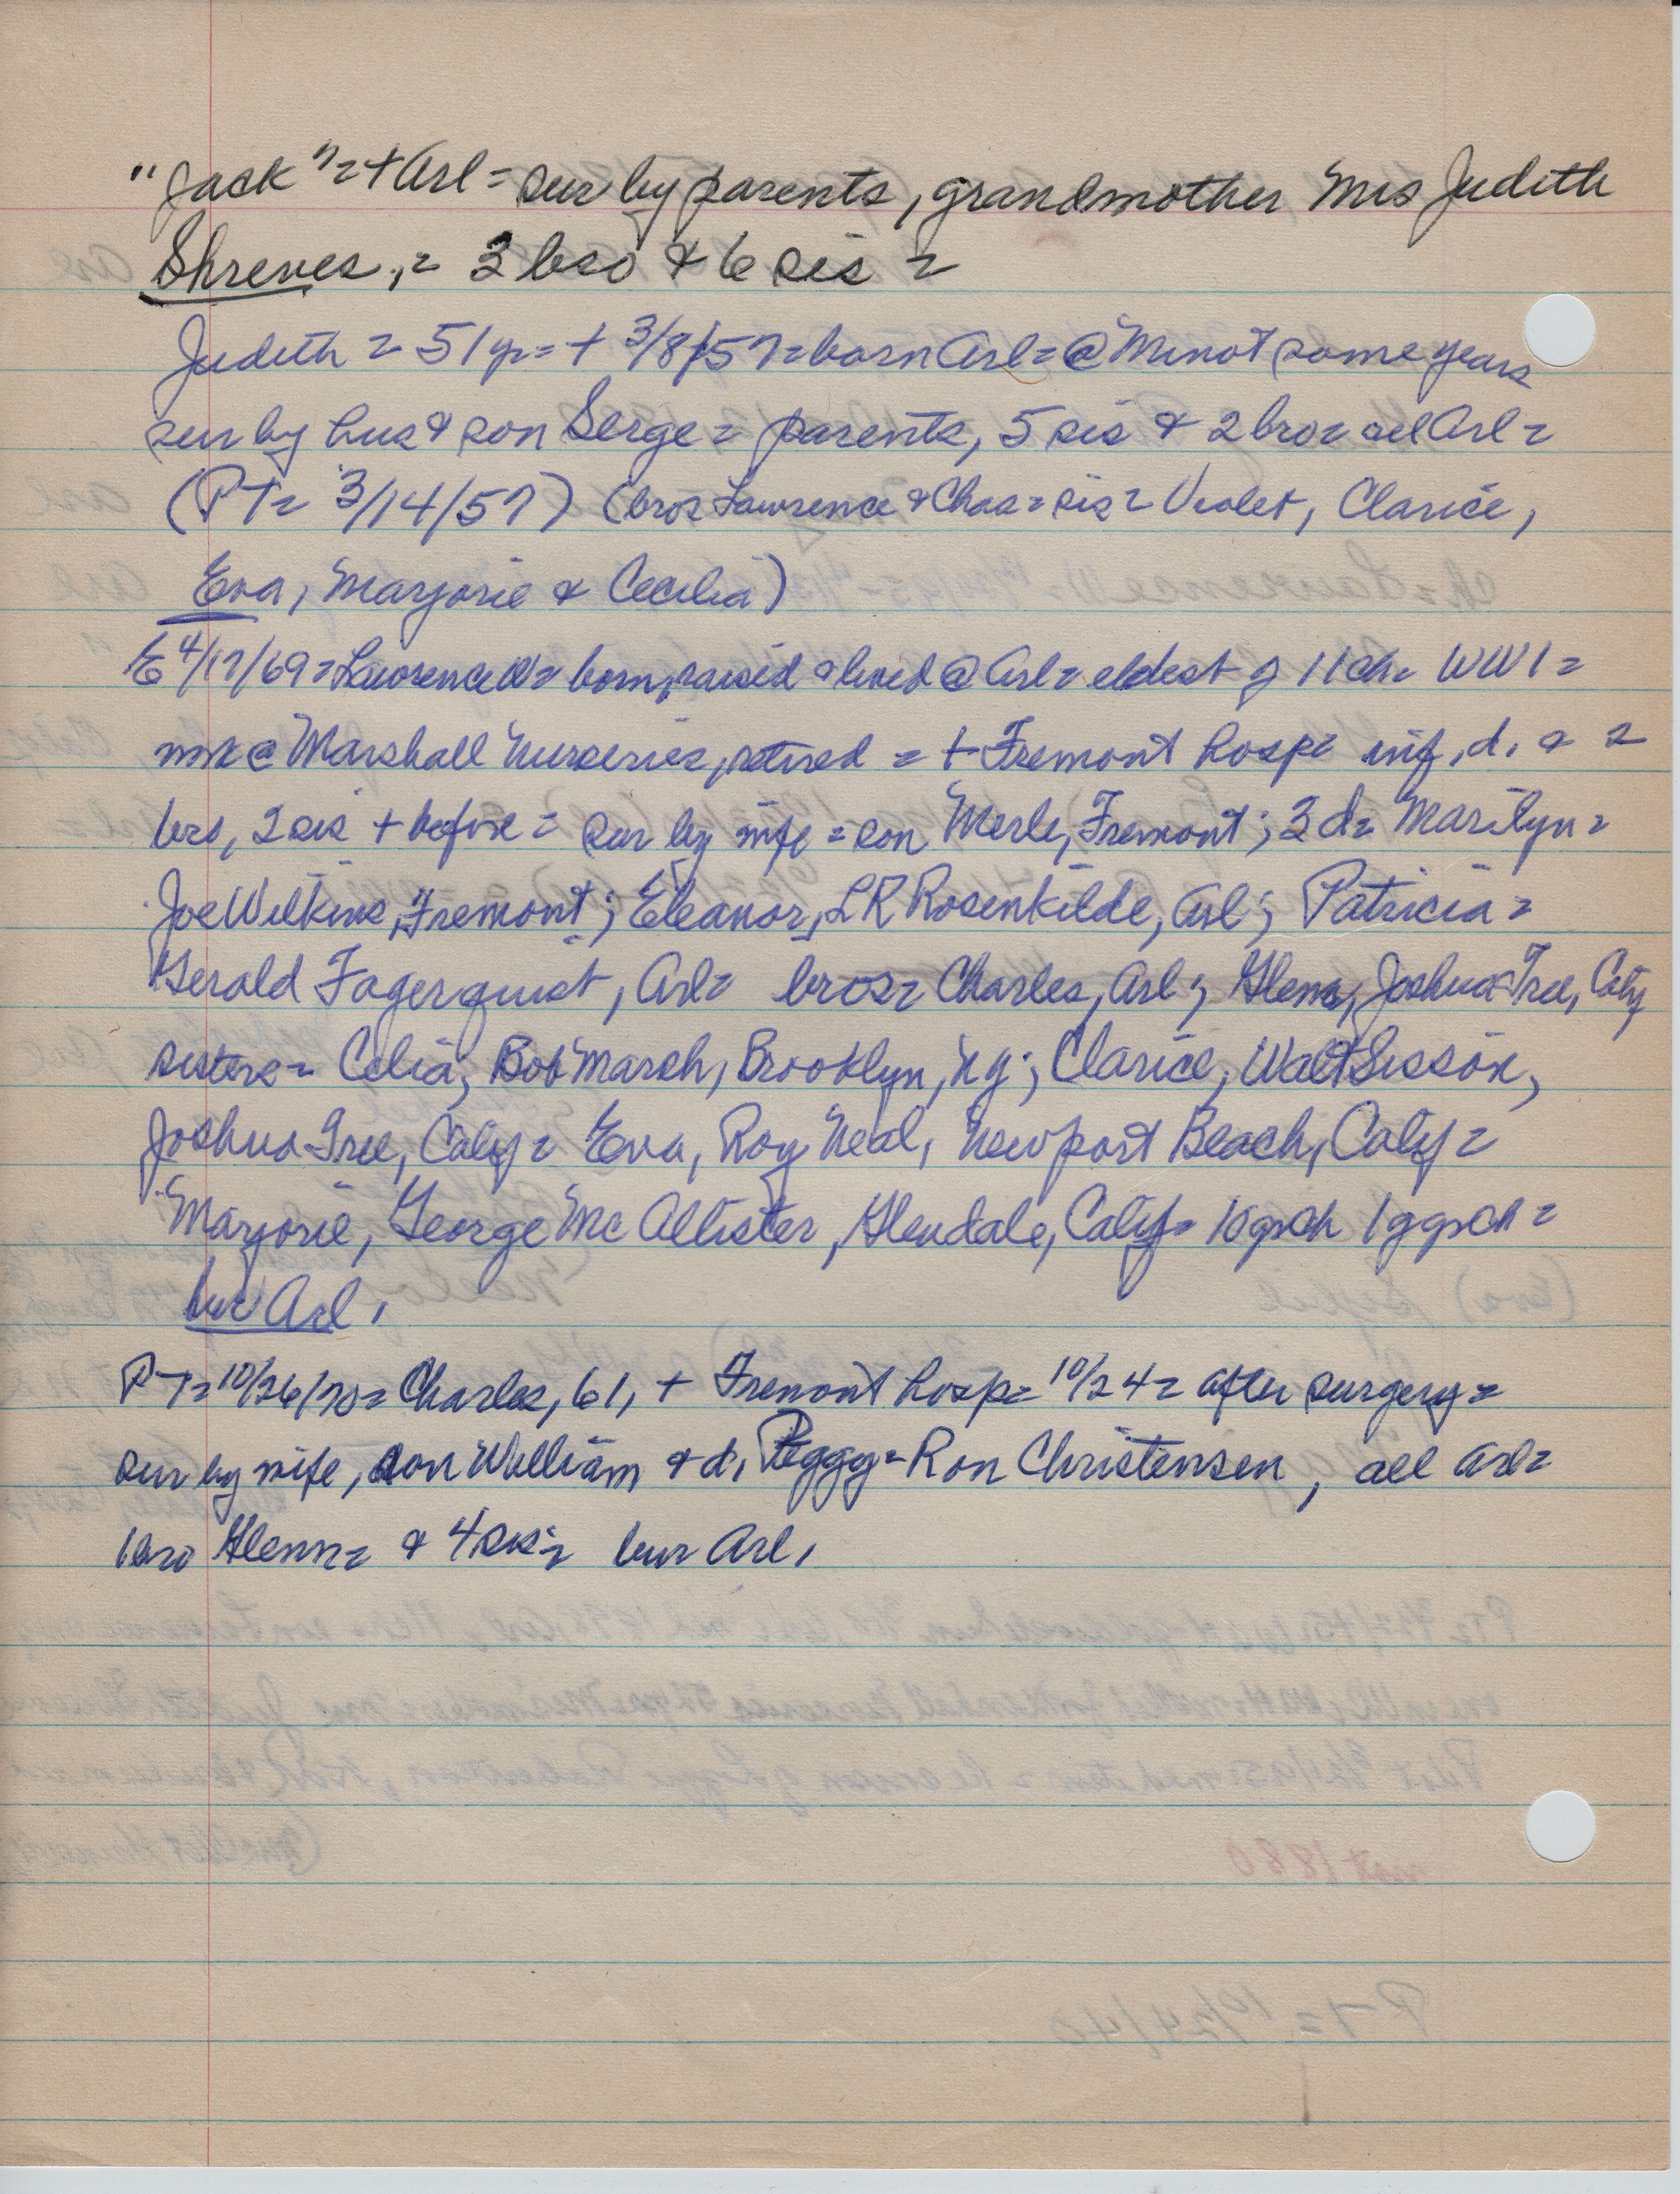 "Jack" = + Arl = sur by parents, grandmother Mrs Judith
Shreves, = 3 bro & 6 sis =
Judith = 51 yr = + 3/8/57 = born Arl = @ Minot some years
sur by hus & son Serge = parents, 5 sis & 2 bro = all Arl =
(PT = 3/14/57) (bros Lawrence & Chas = sis = Violet, Clarice,
Eva, Marjorie & Cecilia)
E 4/17/69 = Lawrence W = born, raised & lived @ Arl = eldest of 11 ch = WW1 =
wrk @ Marshall Nurseries, retired = + Fremont Hosp = inf. d. & 2
bro, 2 sis + before = sur by wife = son Merle, Fremont; 3 d = Marilyn =
Joe Wilkins, Fremont; Eleanor, LR Rosenkilde, Arl; Patricia =
Gerald Fagerquist, Arl = bros = Charles, Arl; Glenn, Joshua Tree, Calif
sisters = Celia, Bob March, Brooklyn, NY; Clarice, Walt Sisson,
Joshua Tree, Calif = Eva, Roy Neal, Newport Beach, Calif =
Marjorie, George McAllister, Glendale, Calif = 10 grch 1 ggrch =
bur Arl.
PT = 10/26/70 = Charles, 61, + Fremont Hosp = 10/24 = after surgery =
sur by wife, son William & d. Peggy = Ron Christensen, all Arl =
1 bro Glenn = & 4 sis = bur Arl.